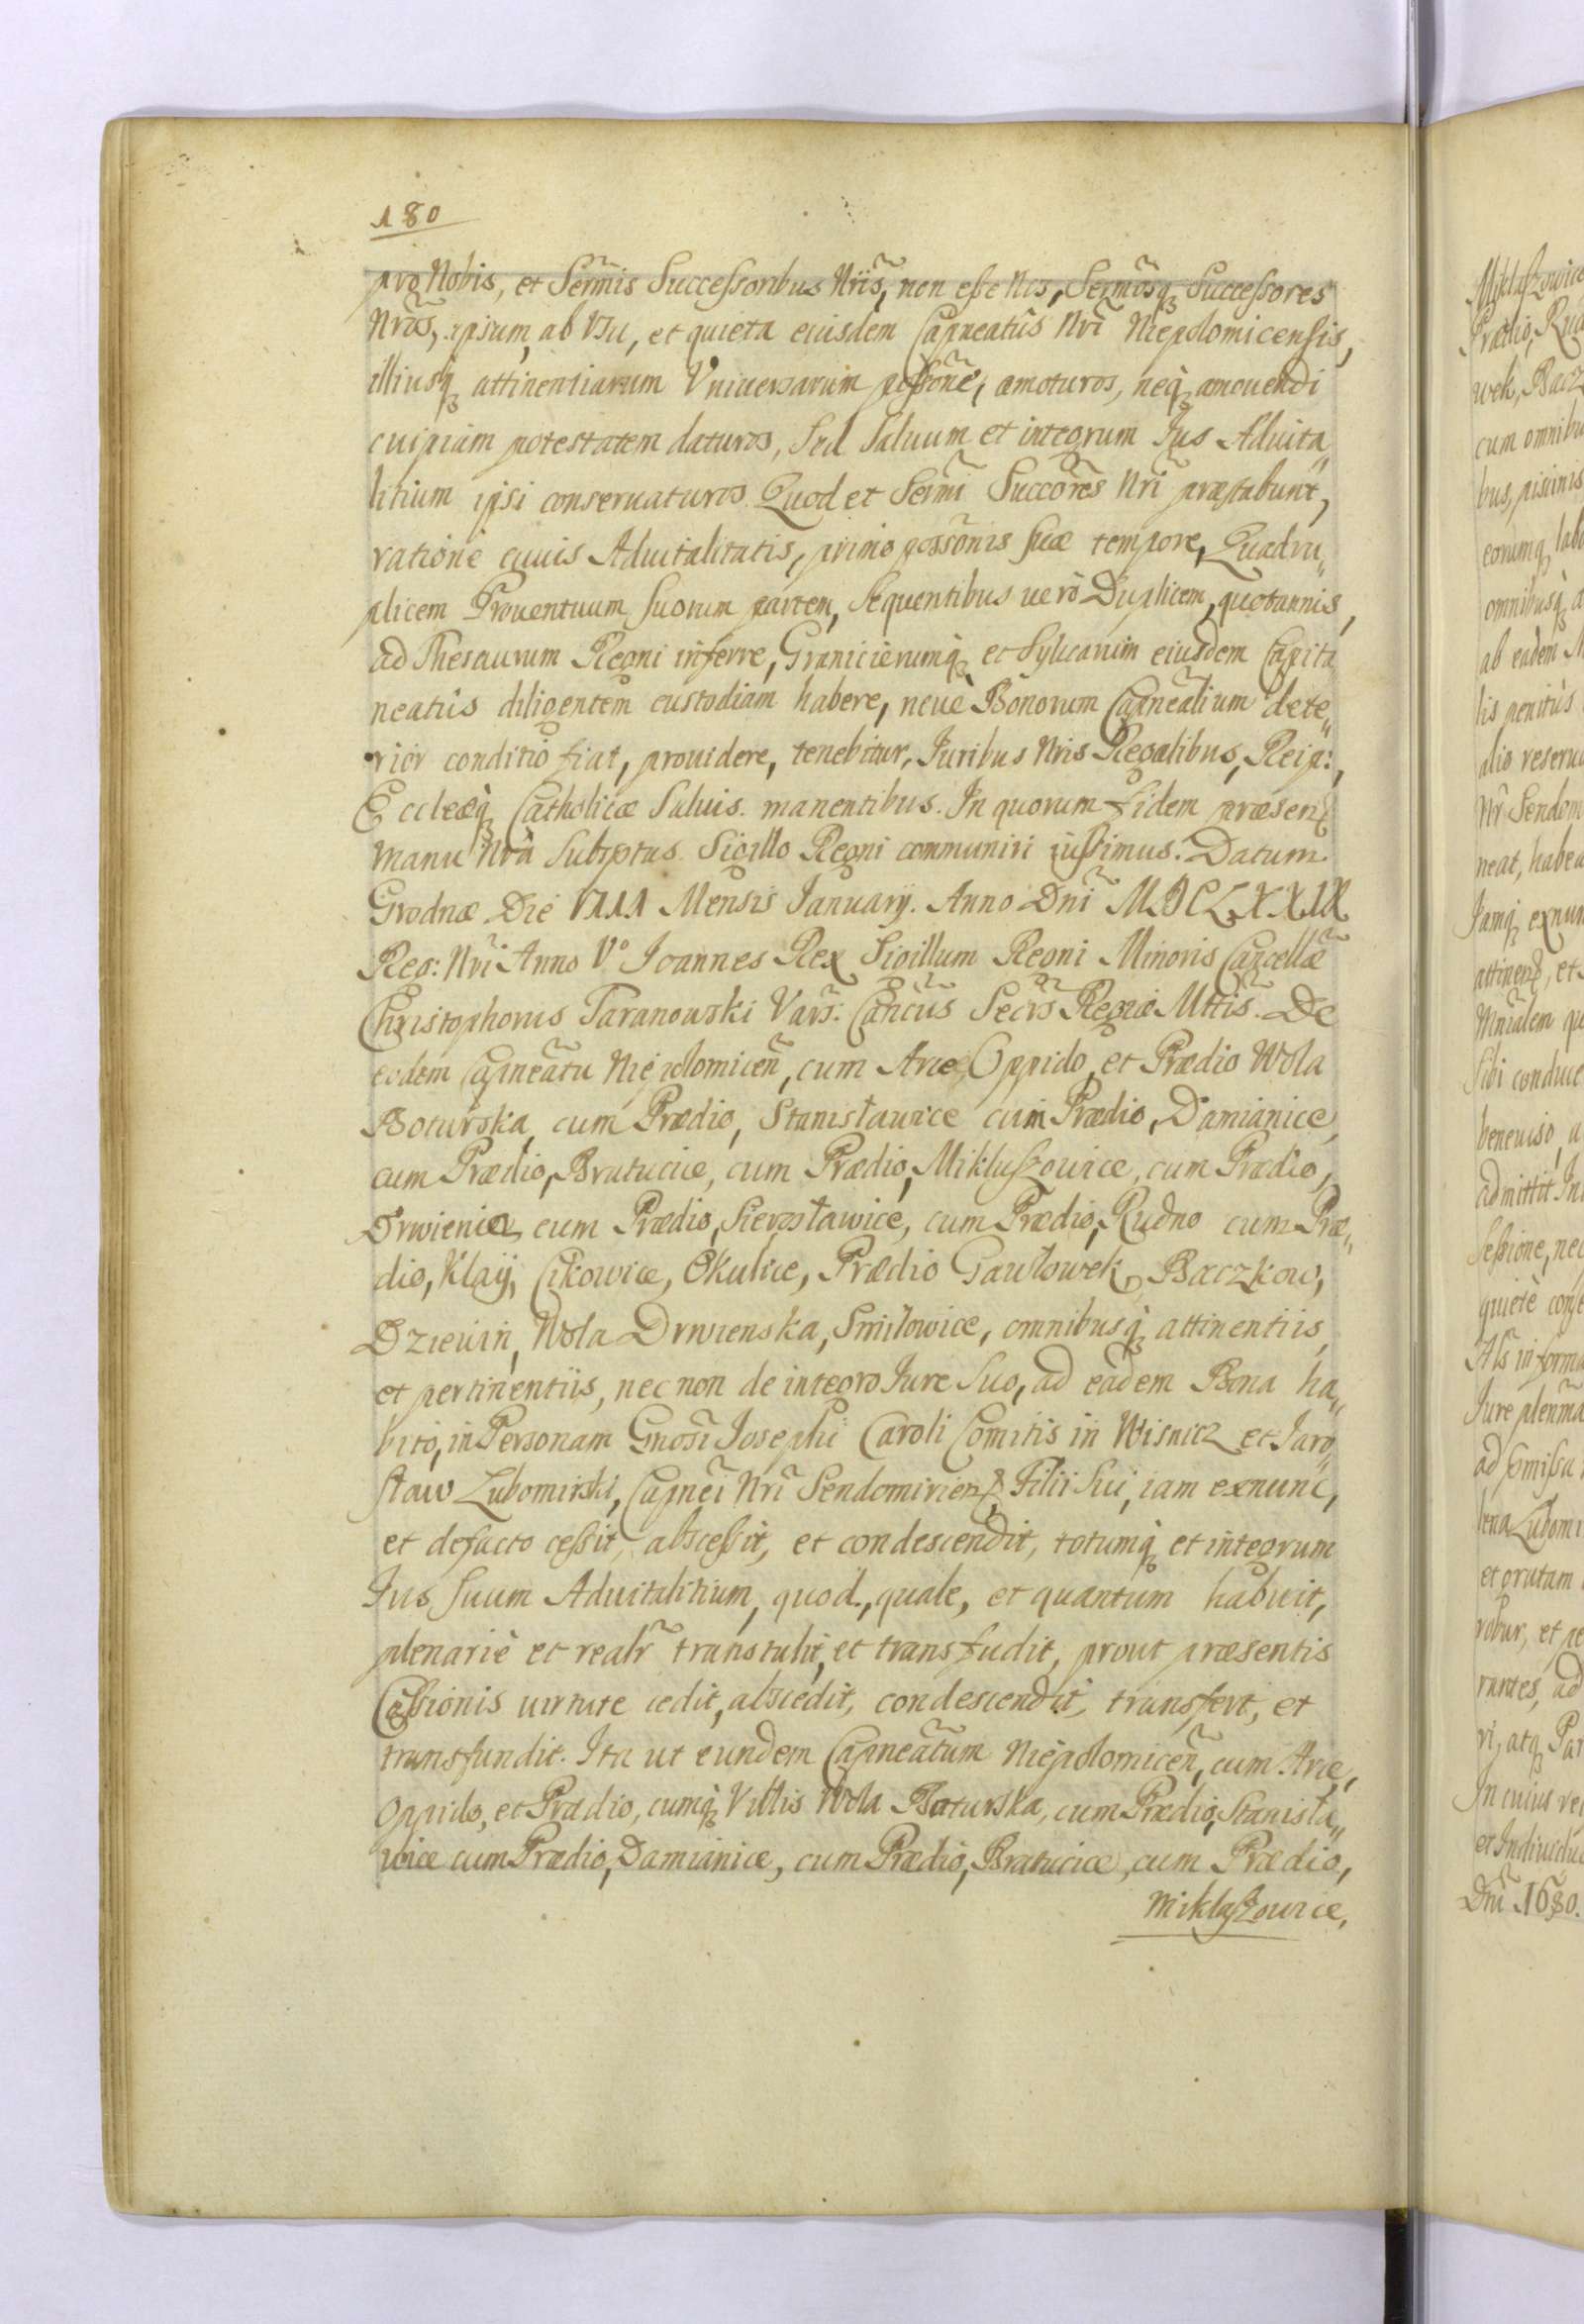 180
pro Nobis, et Sermis Successoribus Nris, non esse Nos, Sermosq Successores
Nros, ipsum, ab Usu, et quieta eiusdem Capneatûs Nri Niepolomicensis,
illiusq attinentiarum Vniuersarum possone, amoturos, neq amouendi
cuipiam potestatem daturos, Sed Saluum et integrum Jus Aduita„
litium ipsi conseruaturos. Quod et Sermi Succores Nri præstabunt,
ratione cuius Aduitalitatis, primo possonis suæ tempore, Quadru„
plicem Prouentuum suorum partem, Sequentibus uerò Duplicem, quotannis,
ad Thesaurum Regni inferre, Granicierumq et Syluarum eiusdem Capita
neatûs diligentem custodiam habere, neuè Bonorum Capnealium dete„
rior conditio fiat, prouidere, tenebitur, Juribus Nris Regalibus, Reip:,
Eccleæq Catholicæ Saluis manentibus. In quorum fidem præsen
manu Nrâ Subscriptas Sigillo Regni communiri iussimus. Datum
Grodnæ Die VIII Mensis January. Anno Dni MDCLXXIX
Reg: Nri Anno V° Joannes Rex Sigillum Regni Minoris Cancellæ
Christophorus Taranowski Vars: Cancus Secrs Regiæ Mttis. De
eodem Capneatu Niepolomicen, cum Arce, Oppido, et Prædio Wola
Boturska, cum Prædio, Stanisławice cum Prædio, Damianice,
cum Prædio, Bratucice, cum Prædio, Mikluszowice, cum Prædio,
Drwienia, cum Prædio, Sierosławice, cum Prædio, Rudno cum Præ„
dio, Klaÿ, Cikowice, Okulice, Prædio Gawłowek, Baczkow,
Dziewin, Wola Drwienska, Smiłowice, omnibusq attinentiis,
et pertinentiis, nec non de integro Jure Suo, ad eadem Bona ha„
bito, in Personam Gnosi Josephi Caroli Comitis in Wisnicz et Jaro„
sław Lubomirski, Capnei Nri Sendomirien, Filii Sui, iam exnunc,
et defacto cessit, abscessit, et condescendit, totumq et integrum
Jus suum Aduitalitium, quod, quale, et quantum habuit,
plenariè et realr transtulit, et transfudit, prout præsentis
Cessionis uirtute cedit, abscedit, condescendit, transfert, et
transfundit. Ita ut eundem Capneatum Niepolomicen, cum Arce,
Oppido, et Prædio, cumq Villis Wola Baturska, cum Prædio, Stanisła„
wice cum Prædio, Damianice, cum Prædio, Bratucice, cum Prædio,
Miklaszowice,
Miklaszowice
Prædio, Rud
wek, Bacz
cum omnibu
bus, piscinis
eorumq, lab
omnibusq a
ab eadem
lis penitùs
alio reserua
Nr Sendom
neat, habea
Jamq exnun
attinen, et
Mnialem
sibi conduce
beneuiso, a
admittit In
sessione, nec
quietè con
Als in forma
Jure plenma
ad
bena Lubomi
et gratam
robur, et pe
rantes, ad
ri, atq Par
In cuius rei
et Indiuidu
Dni 1680.